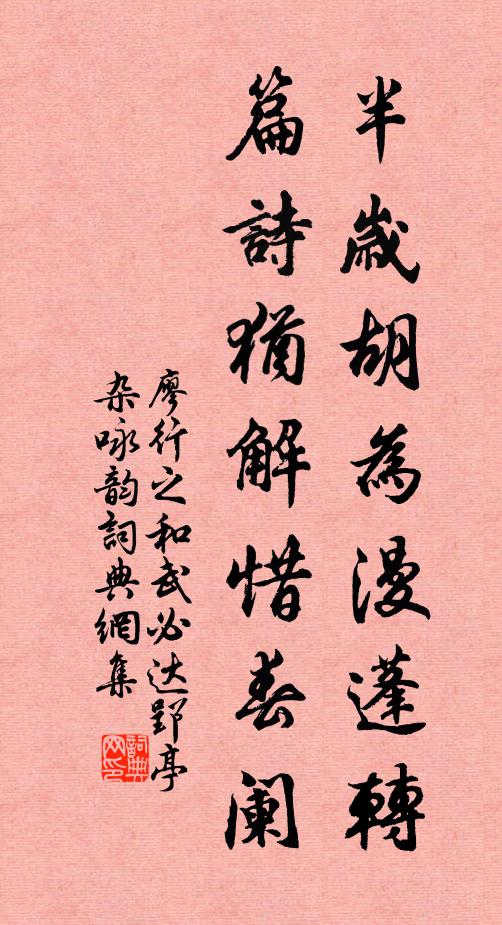 半歲胡為漫蓬轉
篇詩猶解惜春阑
廖行之和武必达郢亭
杂咏韵詞典網集
詞典
网印